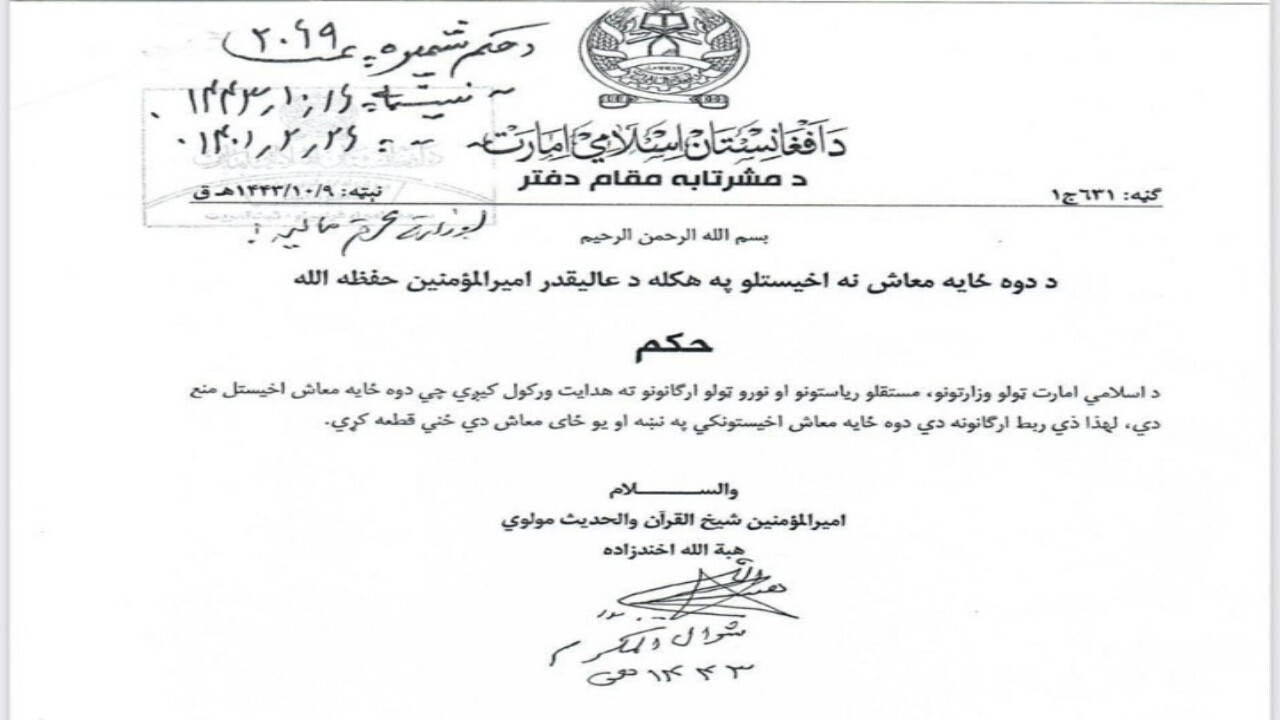 د حکم شمېره ۲۰۶۹
۱۴۴۳/۱۰/۱۶
۱۴۰۱/۲/۲۶
د افغانستان اسلامي امارت
د مشرتابه مقام دفتر
ګڼه: ٦٣١ج١
نېټه: ١٤٤٣/١٠/٩هـ ق
وزارت محترم مالیې!
بسم الله الرحمن الرحیم
د دوه ځایه معاش نه اخیستلو په هکله د عالیقدر امیرالمؤمنین حفظه الله
حکم
د اسلامي امارت ټولو وزارتونو، مستقلو ریاستونو او نورو ټولو ارګانونو ته هدایت ورکول کیږي چي دوه ځایه معاش اخیستل منع
دي، لهذا ذي ربط ارګانونه دي دوه ځایه معاش اخیستونکي په نښه او یو ځای معاش دي ځني قطعه کړي.
والســـــــلام
امیرالمؤمنین شیخ القرآن والحدیث مولوي
هبة الله اخندزاده
شوال المکرم
۱۴۴۳